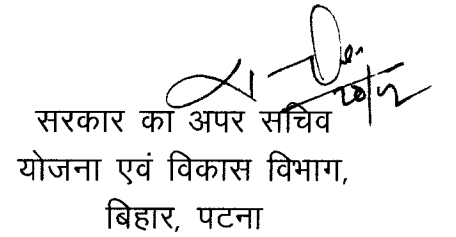 सरकार का अपर सचिव
योजना एवं विकास विभाग,
बिहार, पटना